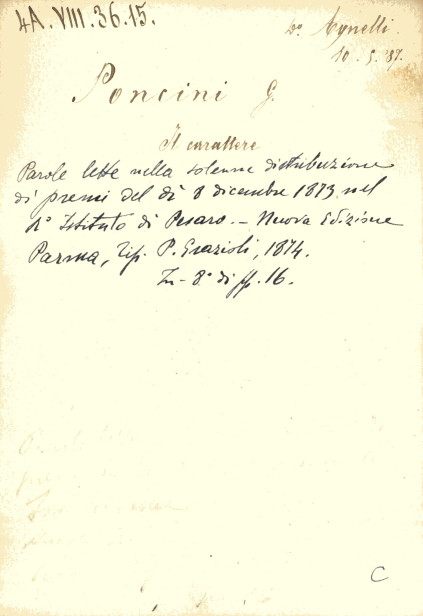 4A.VIII.36.15.
Do. Agnelli.
10.5.87.
Poncini G.
Il carattere
Parole lette nella solenne distribuzione
di premi del dì 8 dicembre 1873 nel
R° Istituto di Pesaro. - Nuova Edizione
Parma, Tip. P. Grazioli, 1874.
In-8° di pp. 16.
C